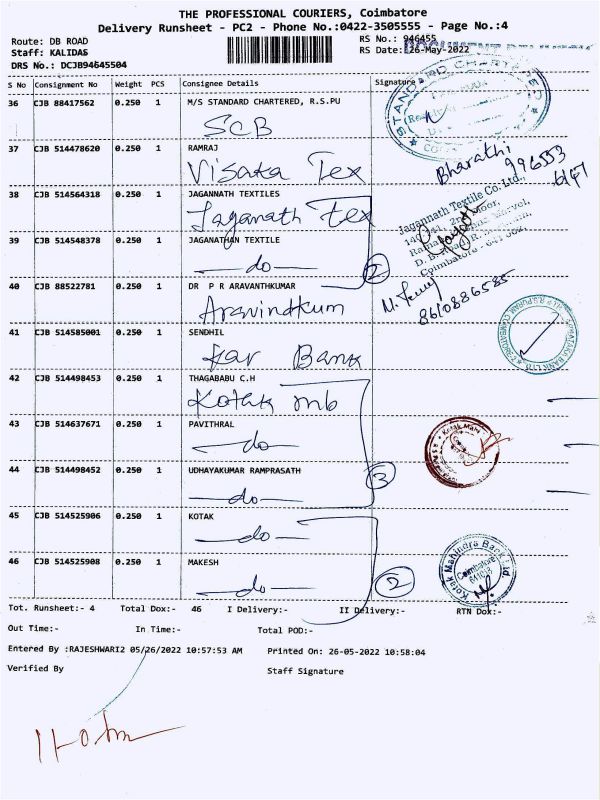 THE PROFESSIONAL COURIERS, Coimbatore
Delivery Runsheet - PC2 - Phone No.:0422-3505555 - Page No.:4
Route: DB ROAD
Staff: KALIDAS
DRS No.: DCJB94645504
RS No.: 946455
RS Date:26-May-2022
S No Consignment No Weight PCS Consignee Details Signature
36 CJB 88417562 0.250 1 M/S STANDARD CHARTERED, R.S.PU
SCB
STANDARD CHARTERED
37 CJB 514478620 0.250 1 RAMRAJ
Visaka Tex
Bharathi
996553
38 CJB 514564318 0.250 1 JAGANNATH TEXTILES
Jaganath Tex
Jagannath Textile Co. Ltd.,
39 CJB 514548378 0.250 1 JAGANATHAN TEXTILE
do
2
Coimbatore - 641 002.
40 CJB 88522781 0.250 1 DR P R ARAVANTHKUMAR
Aravindkum
8610886585
41 CJB 514585001 0.250 1 SENDHIL
Kar Bank
42 CJB 514498453 0.250 1 THAGABABU C.H
Kotak mb
43 CJB 514637671 0.250 1 PAVITHRAL
do
Kotak Mahi
44 CJB 514498452 0.250 1 UDHAYAKUMAR RAMPRASATH
do
3
45 CJB 514525906 0.250 1 KOTAK
do
46 CJB 514525908 0.250 1 MAKESH
do
2
Kotak Mahindra Bank Ltd
Coimbatore
Tot. Runsheet:- 4 Total Dox:- 46 I Delivery:- II Delivery:- RTN Dox:-
Out Time:- In Time:- Total POD:-
Entered By :RAJESHWARI2 05/26/2022 10:57:53 AM Printed On: 26-05-2022 10:58:04
Verified By Staff Signature